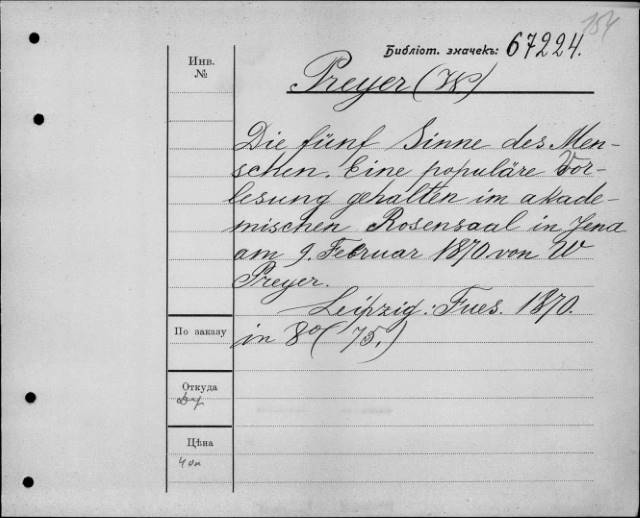 154
Библіот. значекъ: 67224.
Инв.
№
Preyer (W)
Die fünf Sinne des Men-
schen. Eine populäre Vor-
lesung gehalten im akade-
mischen Rosensaal in Jena
am 9. Februar 1870 von W
Preyer.
Leipzig: Fues. 1870.
in 8º (75.)
По заказу
Откуда
Цѣна